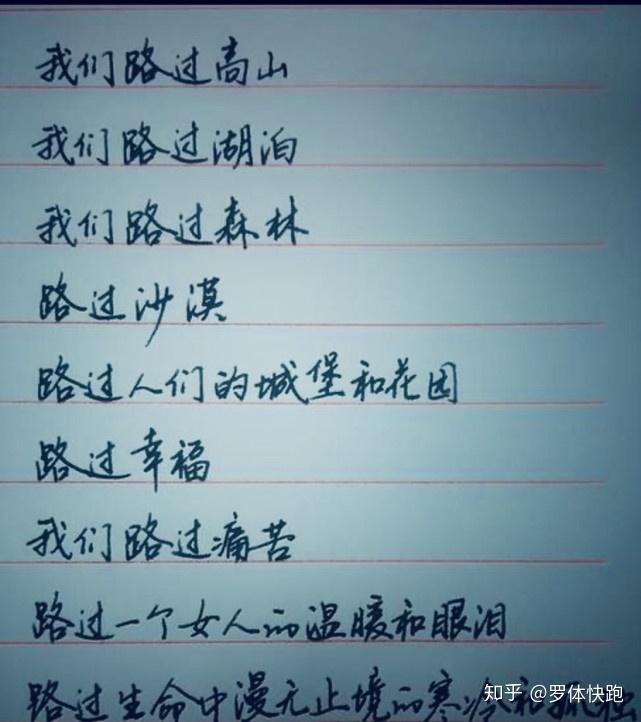 我们路过高山
我们路过湖泊
我们路过森林
路过沙漠
路过人们的城堡和花园
路过幸福
我们路过痛苦
路过一个女人的温暖和眼泪
路过生命中漫无止境的寒冷和孤独
知乎 @罗体快跑